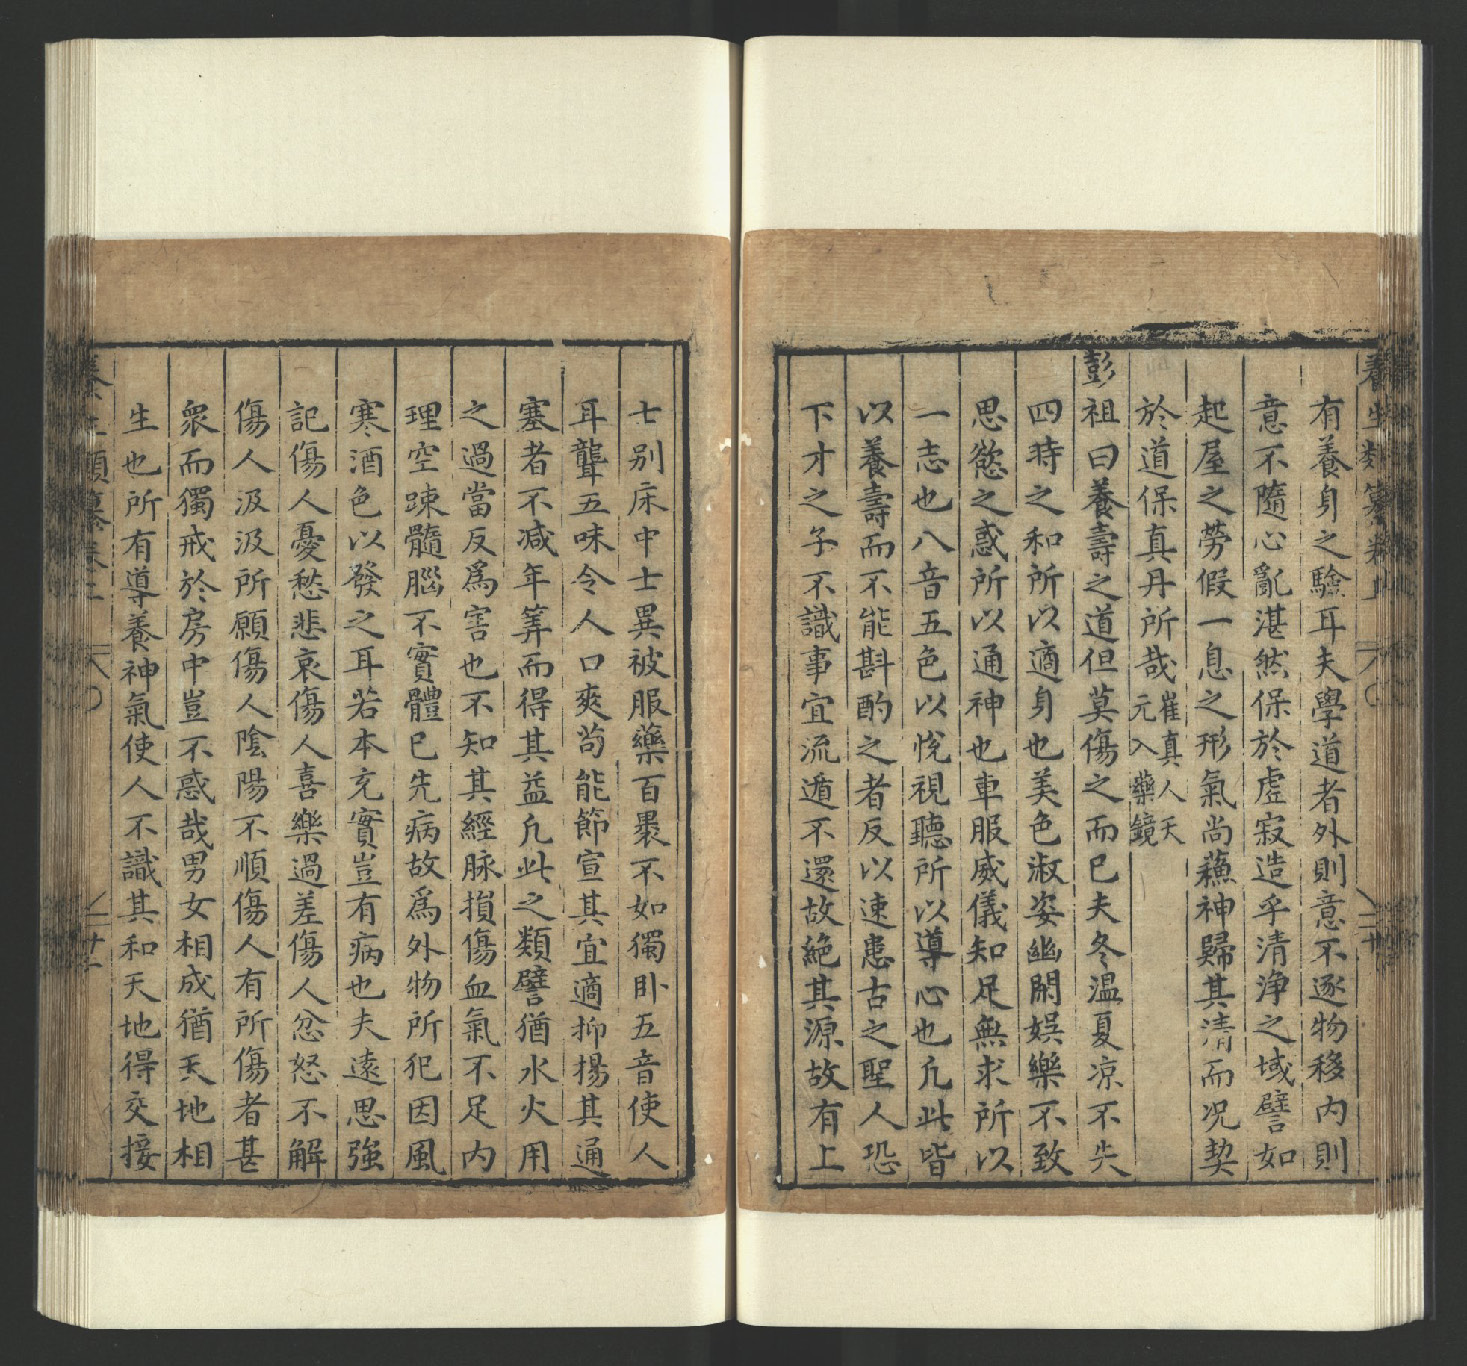 有養身之驗耳夫學道者外則意不逐物移内則
意不隨心亂湛然保於虛寂造乎清淨之域譬如
起屋之勞假一息之形氣尚蘓神歸其清而况契
於道保真丹所哉崔真人天
元入藥鏡
彭祖曰養壽之道但莫傷之而已夫冬温夏凉不失
四時之和所以適身也美色淑姿幽閑娯樂不致
思慾之惑所以通神也車服威儀知足無求所以
一志也八音五色以悅視聽所以導心也凢此皆
以養壽而不能斟酌之者反以速患古之聖人恐
下才之子不識事宜流遁不還故絶其源故有上
七别床中士異被服藥百裹不如獨卧五音使人
耳聾五味令人口爽苟能節宣其宜適抑揚其通
塞者不减年筭而得其益凢此之類譬猶水火用
之過當反爲害也不知其經脉損傷血氣不足内
理空踈髓腦不實體已先病故爲外物所犯因風
寒酒色以發之耳若本充實豈有病也夫遠思強
記傷人憂愁悲哀傷人喜樂過差傷人忿怒不解
傷人汲汲所願傷人陰陽不順傷人有所傷者甚
衆而獨戒於房中豈不惑哉男女相成猶天地相
生也所有導養神氣使人不識其和天地得交接